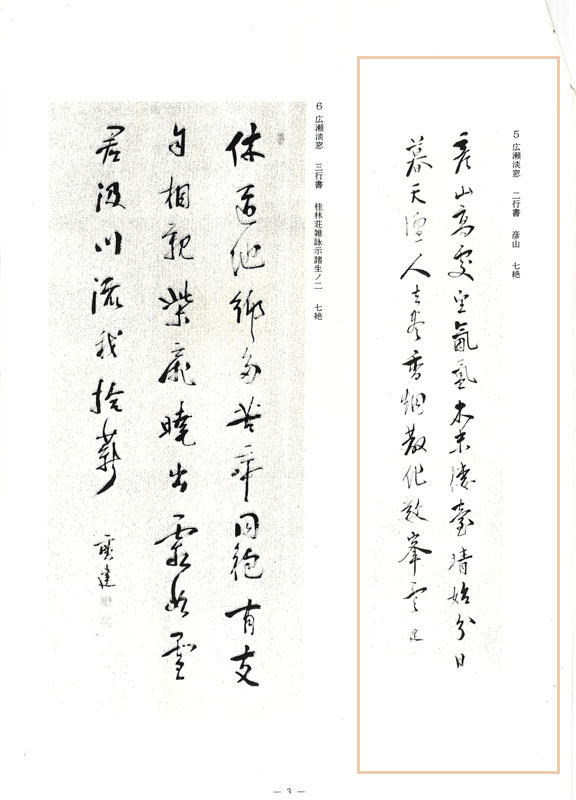 5 広瀬淡窓 二行書 彦山 七絶
彦山高處望氤氳木末楼臺晴始分日
暮天壇人去盡香烟散作数峯雲
6 広瀬淡窓 三行書 桂林荘雑詠示諸生ノ二 七絶
休道他郷多苦辛同袍有友
自相親柴扉曉出霜如雪
君汲川流我拾薪
建
― 3 ―